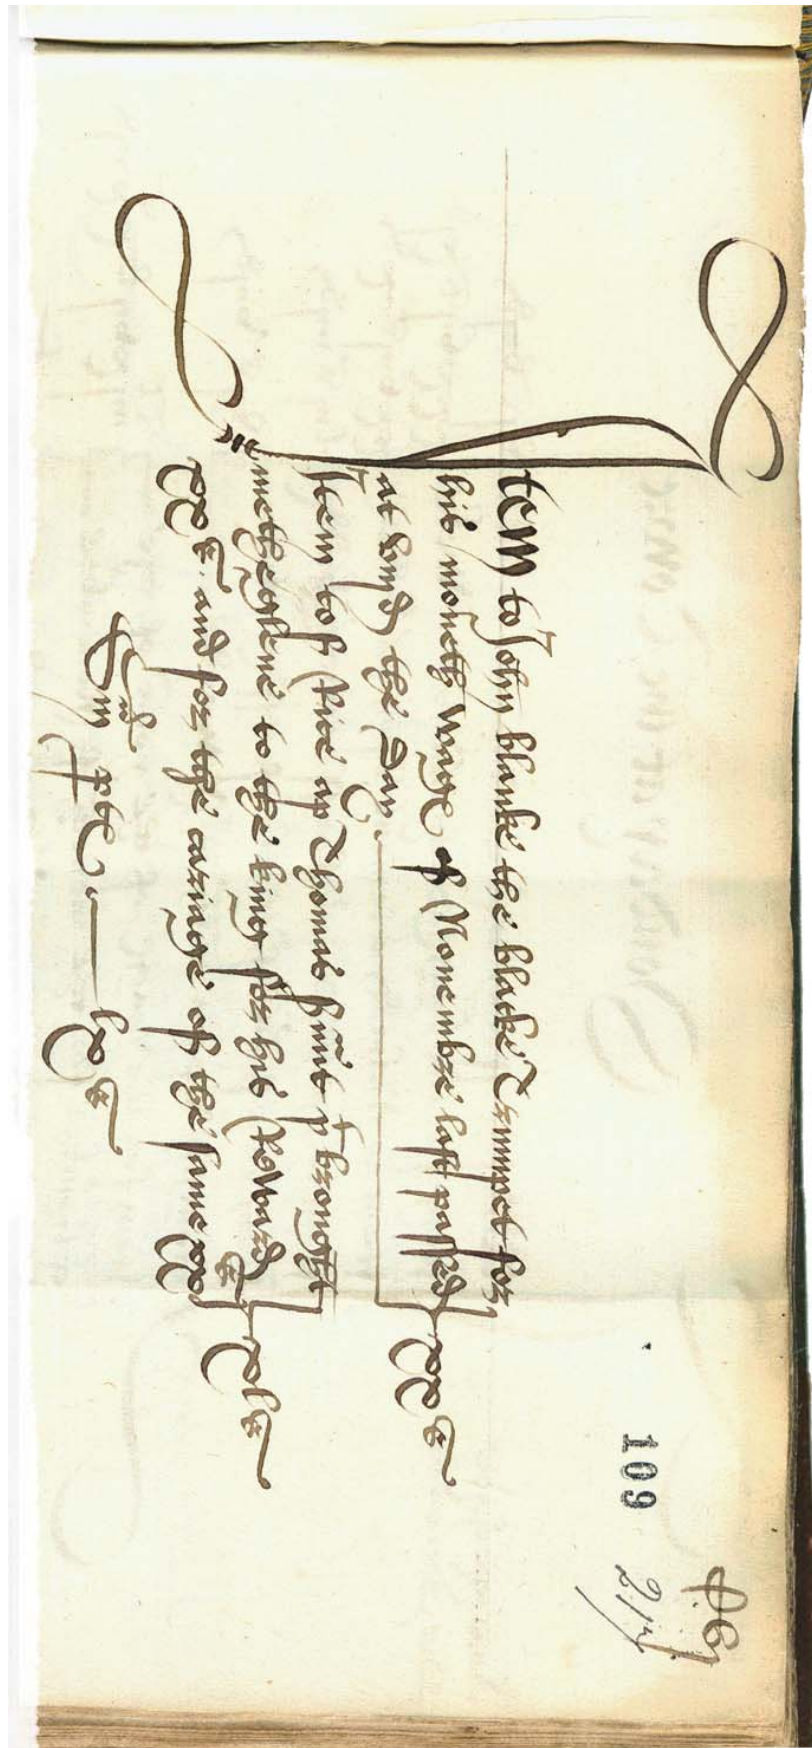 109
Item to John blanke the blacke Trumpet for
his moneth wage of Nouembre last passed
at viijd the day xxs
Item to sr Rice ap Thomas s'unt yt brought
metheglene to the king for his Reward
xxs and for the cariage of the same xxs xls
Sma pte lxs